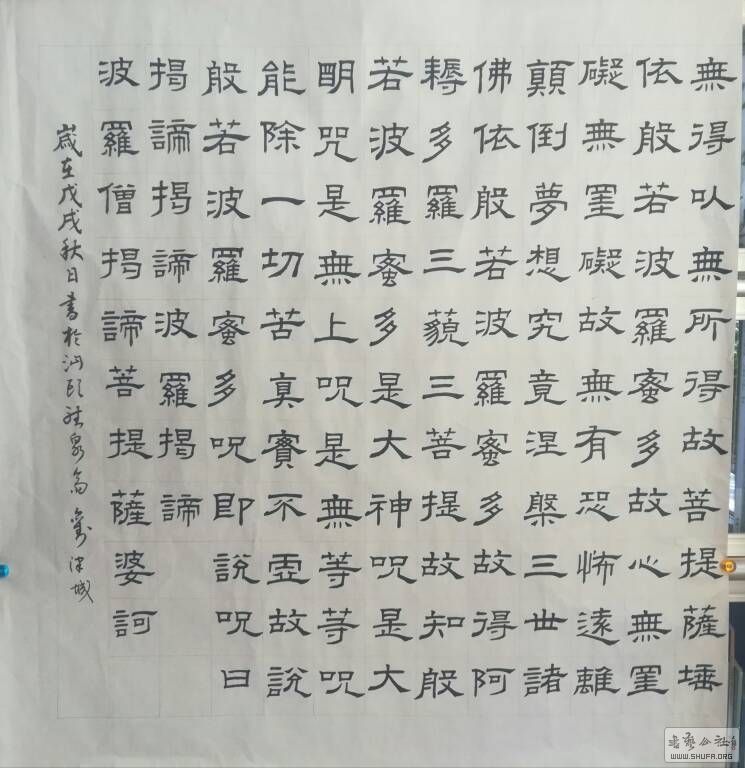 無得以無所得故菩提薩埵
依般若波羅蜜多故心無罣
礙無罣礙故無有恐怖遠離
顛倒夢想究竟涅槃三世諸
佛依般若波羅蜜多故得阿
耨多羅三藐三菩提故知般
若波羅蜜多是大神呪是大
明咒是無上呪是無等等呪
能除一切苦真實不虛故說
般若波羅蜜多呪即說呪曰
揭諦揭諦波羅揭諦
波羅僧揭諦菩提薩婆訶
歲在戊戌秋日書於汕頭泉齋津城
WWW.SHUFA.ORG